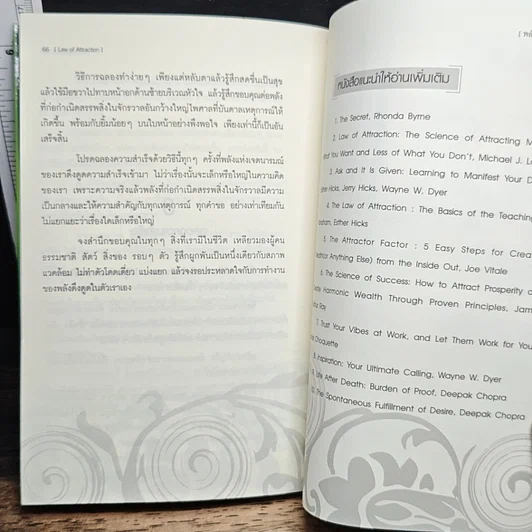 66 [ Law of Attraction ]
วิธีการฉลองทำง่ายๆ เพียงแต่หลับตาแล้วรู้สึกสดชื่นเป็นสุข
แล้วใช้มือขวาไปทาบหน้าอกด้านซ้ายบริเวณหัวใจ แล้วรู้สึกขอบคุณต่อพลัง
ที่ก่อกำเนิดสรรพสิ่งในจักรวาลอันกว้างใหญ่ไพศาลที่บันดาลเหตุการณ์ให้
เกิดขึ้น พร้อมกับยิ้มน้อยๆ บนใบหน้าอย่างพึงพอใจ เพียงเท่านี้ก็เป็นอัน
เสร็จสิ้น
โปรดฉลองความสำเร็จด้วยวิธีนี้ทุกๆ ครั้งที่พลังแห่งเจตนารมณ์
ของเราดึงดูดความสำเร็จเข้ามา ไม่ว่าเรื่องนั้นจะเล็กหรือใหญ่ในความคิด
ของเรา เพราะความจริงแล้วพลังที่ก่อกำเนิดสรรพสิ่งในจักรวาลมีความ
เป็นกลางและให้ความสำคัญกับทุกเหตุการณ์ ทุกคำขอ อย่างเท่าเทียมกัน
ไม่แยกแยะว่าเรื่องใดเล็กหรือใหญ่
จงสำนึกขอบคุณในทุกๆ สิ่งที่เรามีในชีวิต เหลียวมองผู้คน
ธรรมชาติ สัตว์ สิ่งของ รอบๆ ตัว รู้สึกผูกพันเป็นหนึ่งเดียวกับสภาพ
แวดล้อม ไม่ทำตัวโดดเดี่ยว แบ่งแยก แล้วจงรอประหลาดใจกับการทำงาน
ของพลังดึงดูดในตัวเราเอง
หนังสือแนะนำให้อ่านเพิ่มเติม
1. The Secret, Rhonda Byrne
2. Law of Attraction: The Science of Attracting
What You Want and Less of What You Don't, Michael J.
3. Ask and It Is Given: Learning to Manifest Your
Hicks, Jerry Hicks, Wayne W. Dyer
4. The Law of Attraction : The Basics of the
Esther Hicks
5. The Attractor Factor : 5 Easy Steps for
Anything Else) from the Inside Out, Joe Vitale
6. The Science of Success: How to Attract Prosperity
Harmonic Wealth Through Proven Principles,
Ray
7. Trust Your Vibes at Work, and Let Them Work for
Choquette
8. Inspiration: Your Ultimate Calling, Wayne W. Dyer
9. Life After Death: Burden of Proof, Deepak Chopra
The Spontaneous Fulfillment of Desire, Deepak Chopra